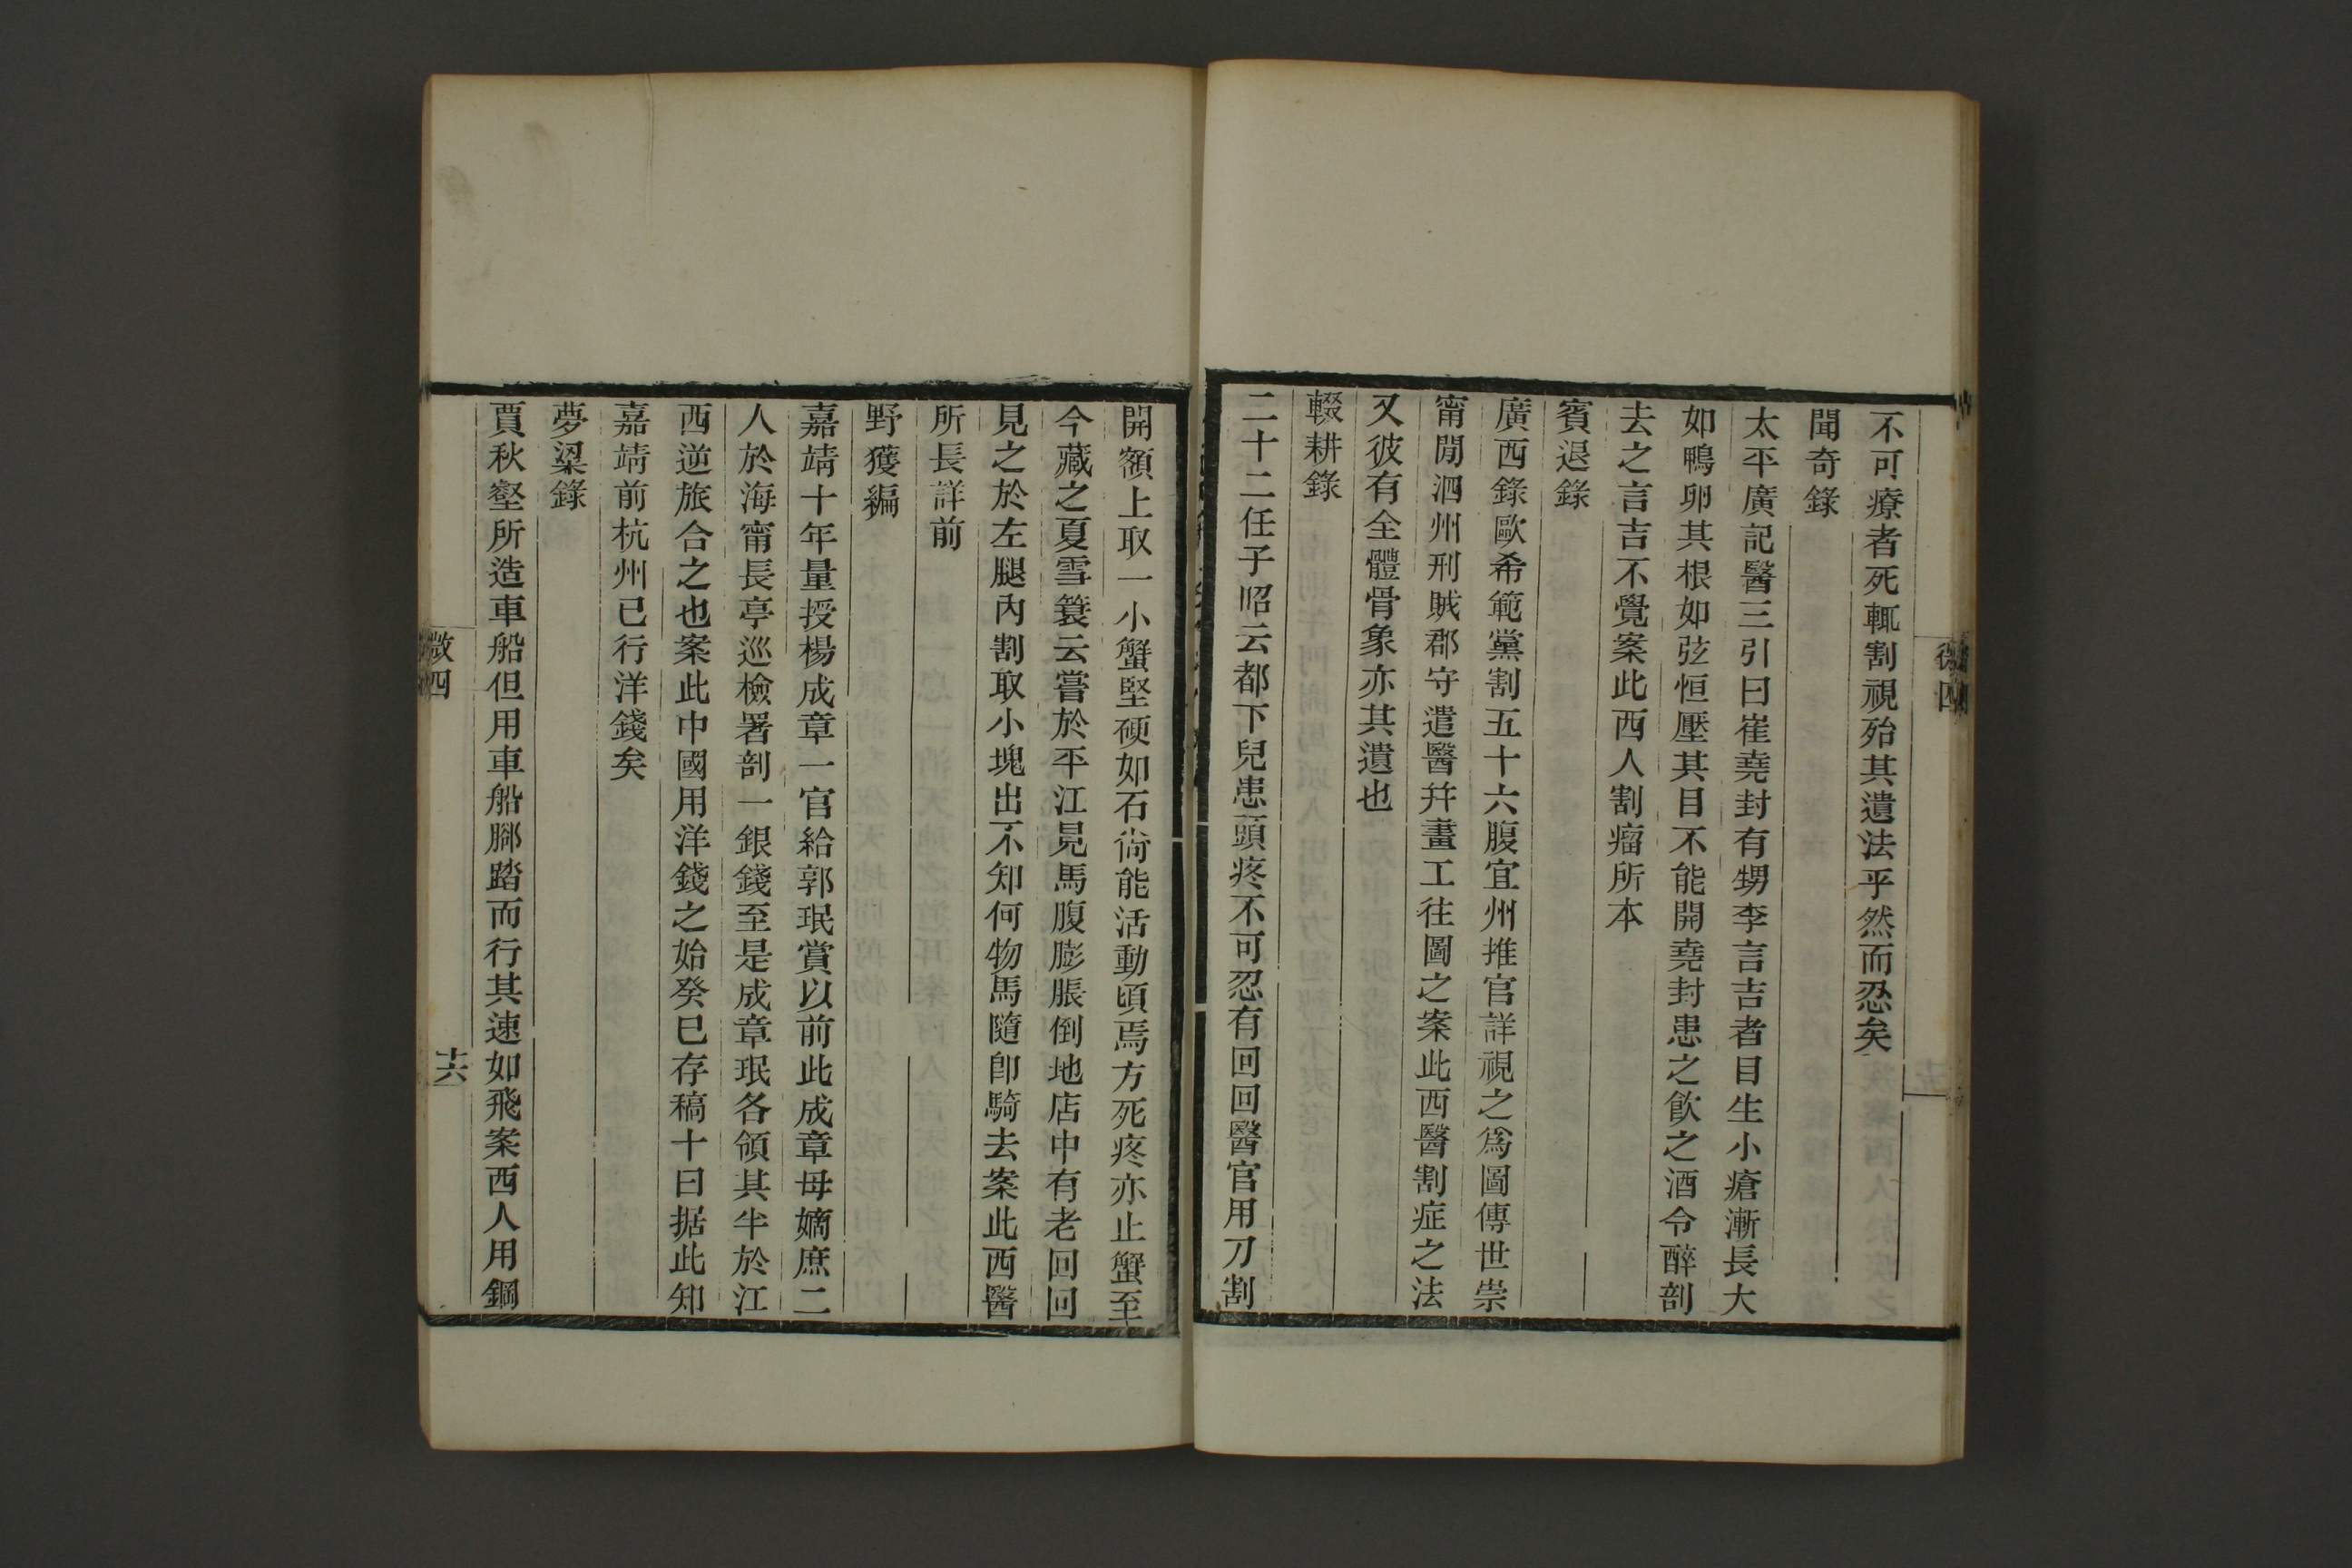 不可療者死輒割視殆其遺法乎然而忍矣
聞奇錄
太平廣記醫三引曰崔堯封有甥李言吉者目生小瘡漸長大
如鴨卵其根如弦恒壓其目不能開堯封患之飮之酒令醉剖
去之言吉不覺案此西人割瘤所本
賓退錄
廣西錄歐希範黨割五十六腹宜州推官詳視之爲圖傳世崇
甯閒泗州刑賊郡守遣醫幷畫工往圖之案此西醫割症之法
又彼有全體骨象亦其遺也
輟耕錄
二十二任子昭云都下兒患頭疼不可忍有回回醫官用刀割
開額上取一小蟹堅硬如石尙能活動頃焉方死疼亦止蟹至
今藏之夏雪簑云嘗於平江見馬腹膨脹倒地店中有老回回
見之於左腿內割取小塊出不知何物馬隨卽騎去案此西醫
所長詳前
野獲編
嘉靖十年量授楊成章一官給郭珉賞以前此成章母嫡庶二
人於海甯長亭巡檢署剖一銀錢至是成章珉各領其半於江
西逆旅合之也案此中國用洋錢之始癸巳存稿十曰据此知
嘉靖前杭州已行洋錢矣
夢粱錄
賈秋壑所造車船但用車船腳踏而行其速如飛案西人用鋼
微四
十六